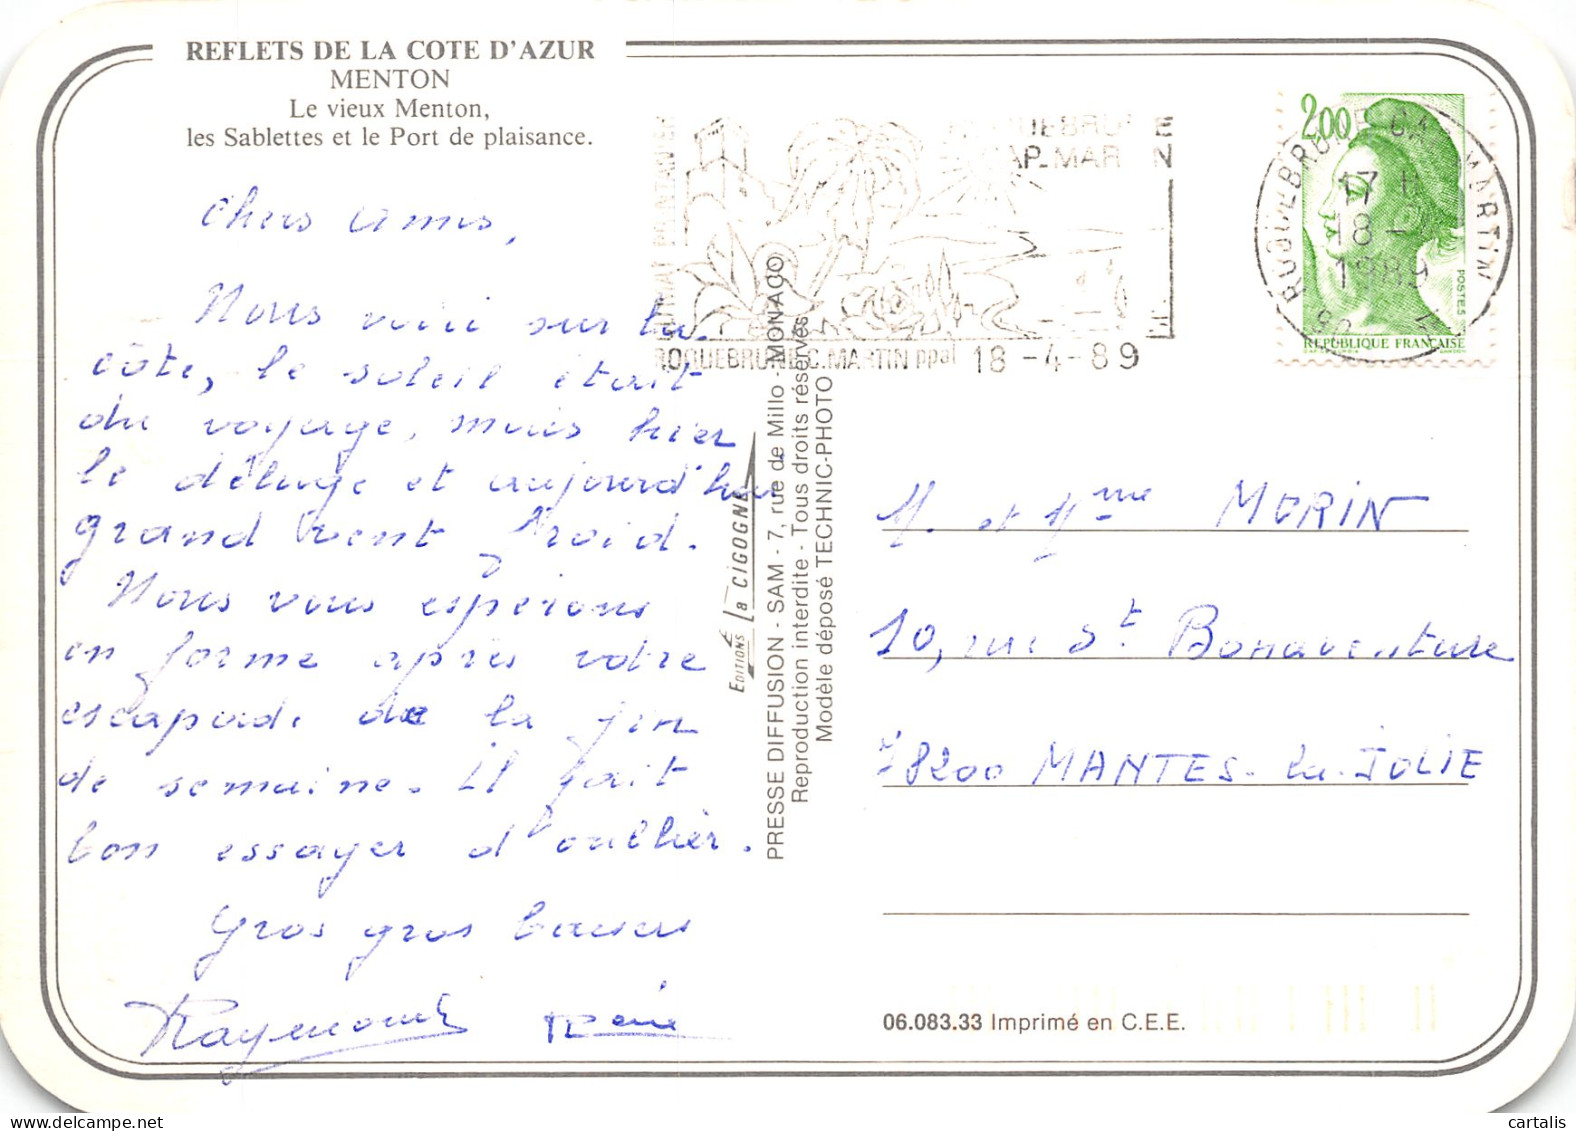 REFLETS DE LA COTE D'AZUR
MENTON
Le vieux Menton,
les Sablettes et le Port de plaisance.
Chers amis,
Nous voici sur la
côte, le soleil était
du voyage, mais hier
le déluge et aujourd'hui
grand vent froid.
Nous vous espérons
en forme après votre
escapade de la fin
de semaine. Il fait
bon essayer d'oublier.
Gros gros baisers
Raymonde Reine
EDITIONS La CIGOGNE
PRESSE DIFFUSION - SAM - 7, rue de Millo - MONACO
Reproduction interdite - Tous droits réservés
Modèle déposé TECHNIC-PHOTO
ROQUEBRUNE
CAP-MARTIN
ROQUEBRUNE C.MARTIN ppal 18 -4- 89
2,00
POSTES
REPUBLIQUE FRANÇAISE
ROQUEBRUNE CAP MARTIN
17 H
18 -4
1989
M. et Mme MORIN
10, rue St Bonaventure
78200 MANTES-la-JOLIE
06.083.33 Imprimé en C.E.E.
cartalis